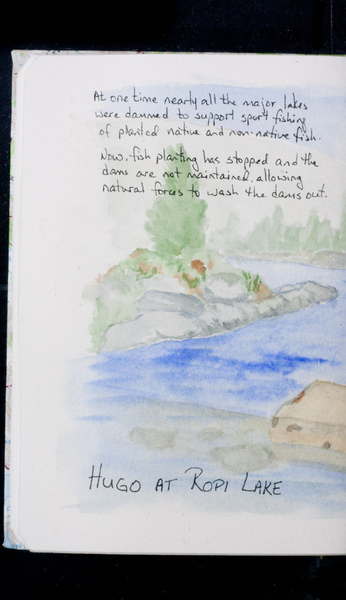 At one time nearly all the major lakes
were dammed to support sport fishing
of planted native and non-native fish.
Now, fish planting has stopped and the
dams are not maintained, allowing
natural forces to wash the dams out.
HUGO AT ROPI LAKE